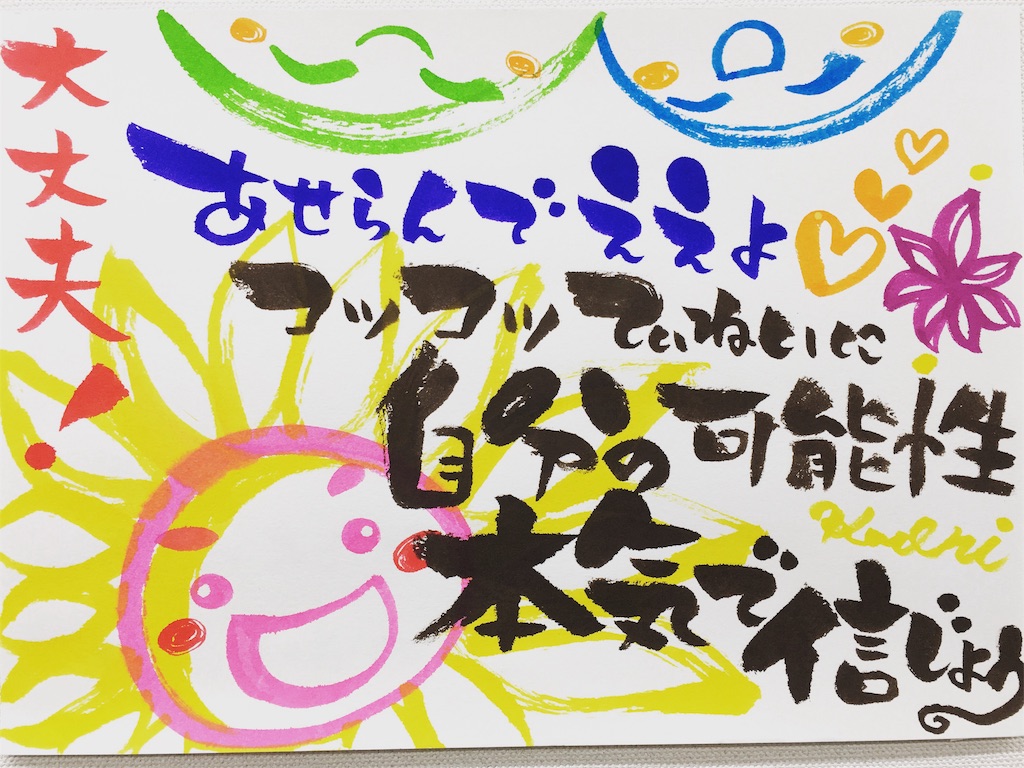 大丈夫!
あせらんでええよ
コツコツていねいに
自分の可能性
本気で信じよう